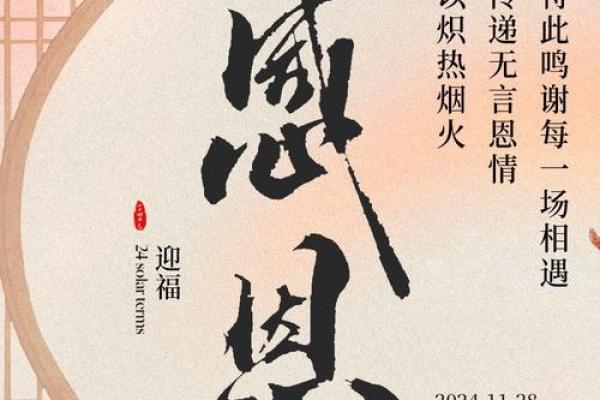 特此鸣谢每一场相遇
传递无言恩情
以炽热烟火
感恩
迎福
24 solar terms
2024-11-28